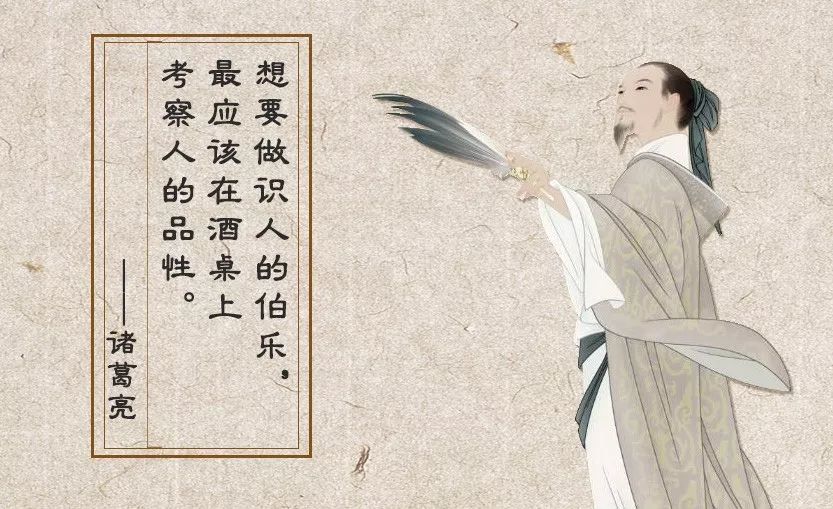 想要做识人的伯乐，
最应该在酒桌上
考察人的品性。
——诸葛亮